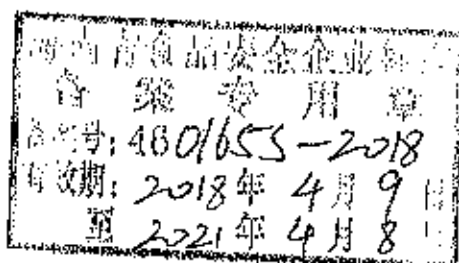 海南省食品安全企业标准
备案专用章
备案号：4601655-2018
有效期：2018年4月9日
至2021年4月8日